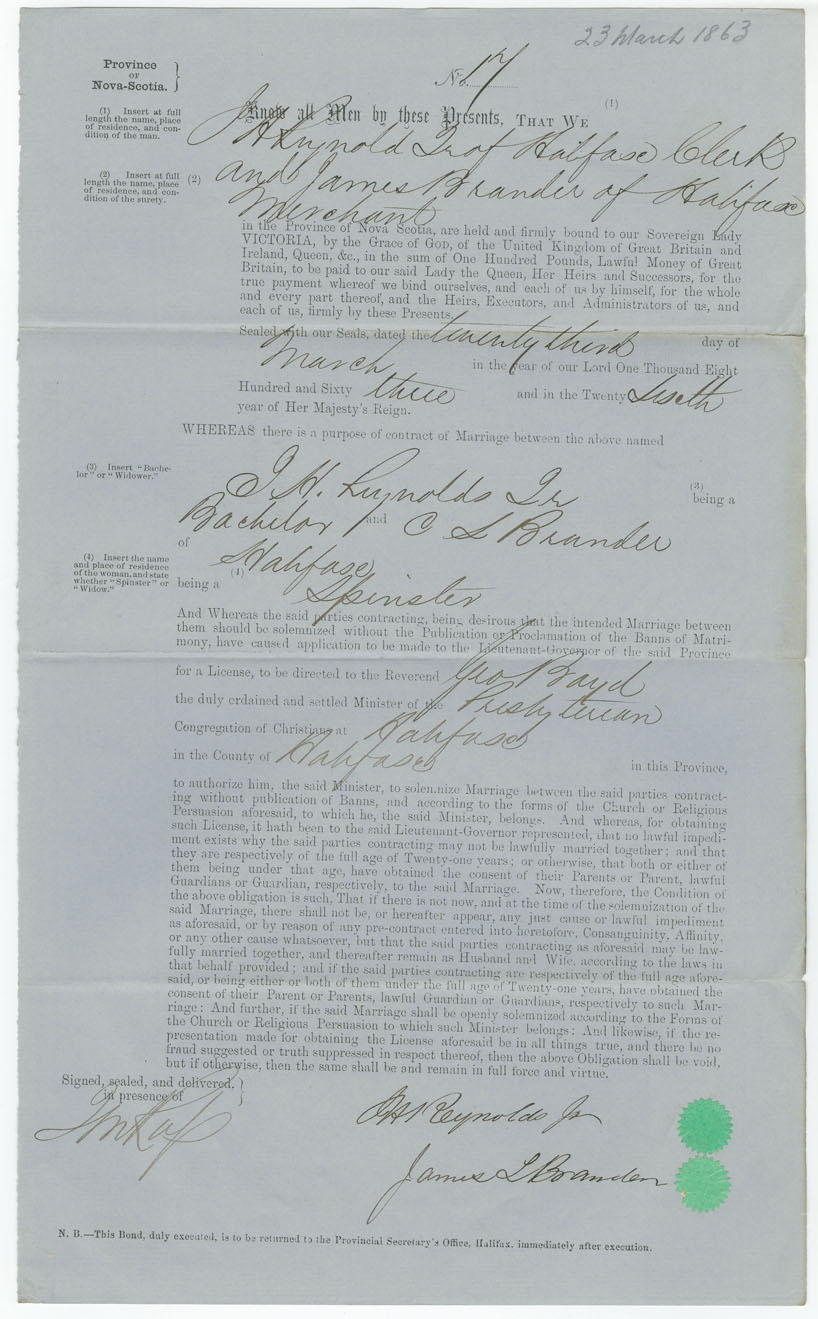 23 March 1863
Province
OF
Nova-Scotia.
No. 17
(1) Insert at full
length the name, place
of residence, and con-
dition of the man.
Know all Men by these Presents, THAT WE (1)
J H Reynold Jr of Halifax Clerk
(2) Insert at full
length the name, place
of residence, and con-
dition of the surety.
(2) and James Brander of Halifax
Merchant
in the Province of Nova Scotia, are held and firmly bound to our Sovereign Lady
VICTORIA, by the Grace of GOD, of the United Kingdom of Great Britain and
Ireland, Queen, &c., in the sum of One Hundred Pounds, Lawful Money of Great
Britain, to be paid to our said Lady the Queen, Her Heirs and Successors, for the
true payment whereof we bind ourselves, and each of us by himself, for the whole
and every part thereof, and the Heirs, Executors, and Administrators of us, and
each of us, firmly by these Presents.
Sealed with our Seals, dated the twenty third day of
March in the year of our Lord One Thousand Eight
Hundred and Sixty three and in the Twenty
year of Her Majesty's Reign.
WHEREAS there is a purpose of contract of Marriage between the above named
(3) Insert "Bache-
lor" or "Widower."
J. H. Reynolds Jr (3) being a
Bachelor and C S Brander
(4) Insert the name
and place of residence
of the woman, and state
whether "Spinster" or
"Widow."
of Halifax
being a (4) Spinster
And Whereas the said parties contracting, being desirous that the intended Marriage between
them should be solemnized without the Publication or Proclamation of the Banns of Matri-
mony, have caused application to be made to the Lieutenant-Governor of the said Province
for a License, to be directed to the Reverend Geo Boyd
the duly ordained and settled Minister of the Presbyterian
Congregation of Christians at Halifax
in the County of Halifax in this Province,
to authorize him, the said Minister, to solemnize Marriage between the said parties contract-
ing without publication of Banns, and according to the forms of the Church or Religious
Persuasion aforesaid, to which he, the said Minister, belongs. And whereas, for obtaining
such License, it hath been to the said Lieutenant-Governor represented, that no lawful impedi-
ment exists why the said parties contracting may not be lawfully married together; and that
they are respectively of the full age of Twenty-one years; or otherwise, that both or either of
them being under that age, have obtained the consent of their Parents or Parent, lawful
Guardians or Guardian, respectively, to the said Marriage. Now, therefore, the Condition of
the above obligation is such, That if there is not now, and at the time of the solemnization of the
said Marriage, there shall not be, or hereafter appear, any just cause or lawful impediment
as aforesaid, or by reason of any pre-contract entered into heretofore, Consanguinity, Affinity,
or any other cause whatsoever, but that the said parties contracting as aforesaid may be law-
fully married together, and thereafter remain as Husband and Wife, according to the laws in
that behalf provided; and if the said parties contracting are respectively of the full age afore-
said, or being either or both of them under the full age of Twenty-one years, have obtained the
consent of their Parent or Parents, lawful Guardian or Guardians, respectively to such Mar-
riage: And further, if the said Marriage shall be openly solemnized according to the Forms of
the Church or Religious Persuasion to which such Minister belongs: And likewise, if the re-
presentation made for obtaining the License aforesaid be in all things true, and there be no
fraud suggested or truth suppressed in respect thereof, then the above Obligation shall be void,
but if otherwise, then the same shall be and remain in full force and virtue.
Signed, sealed, and delivered,
in presence of
JH Reynolds Jr
James S Brander
N. B.—This Bond, duly executed, is to be returned to the Provincial Secretary's Office, Halifax, immediately after execution.